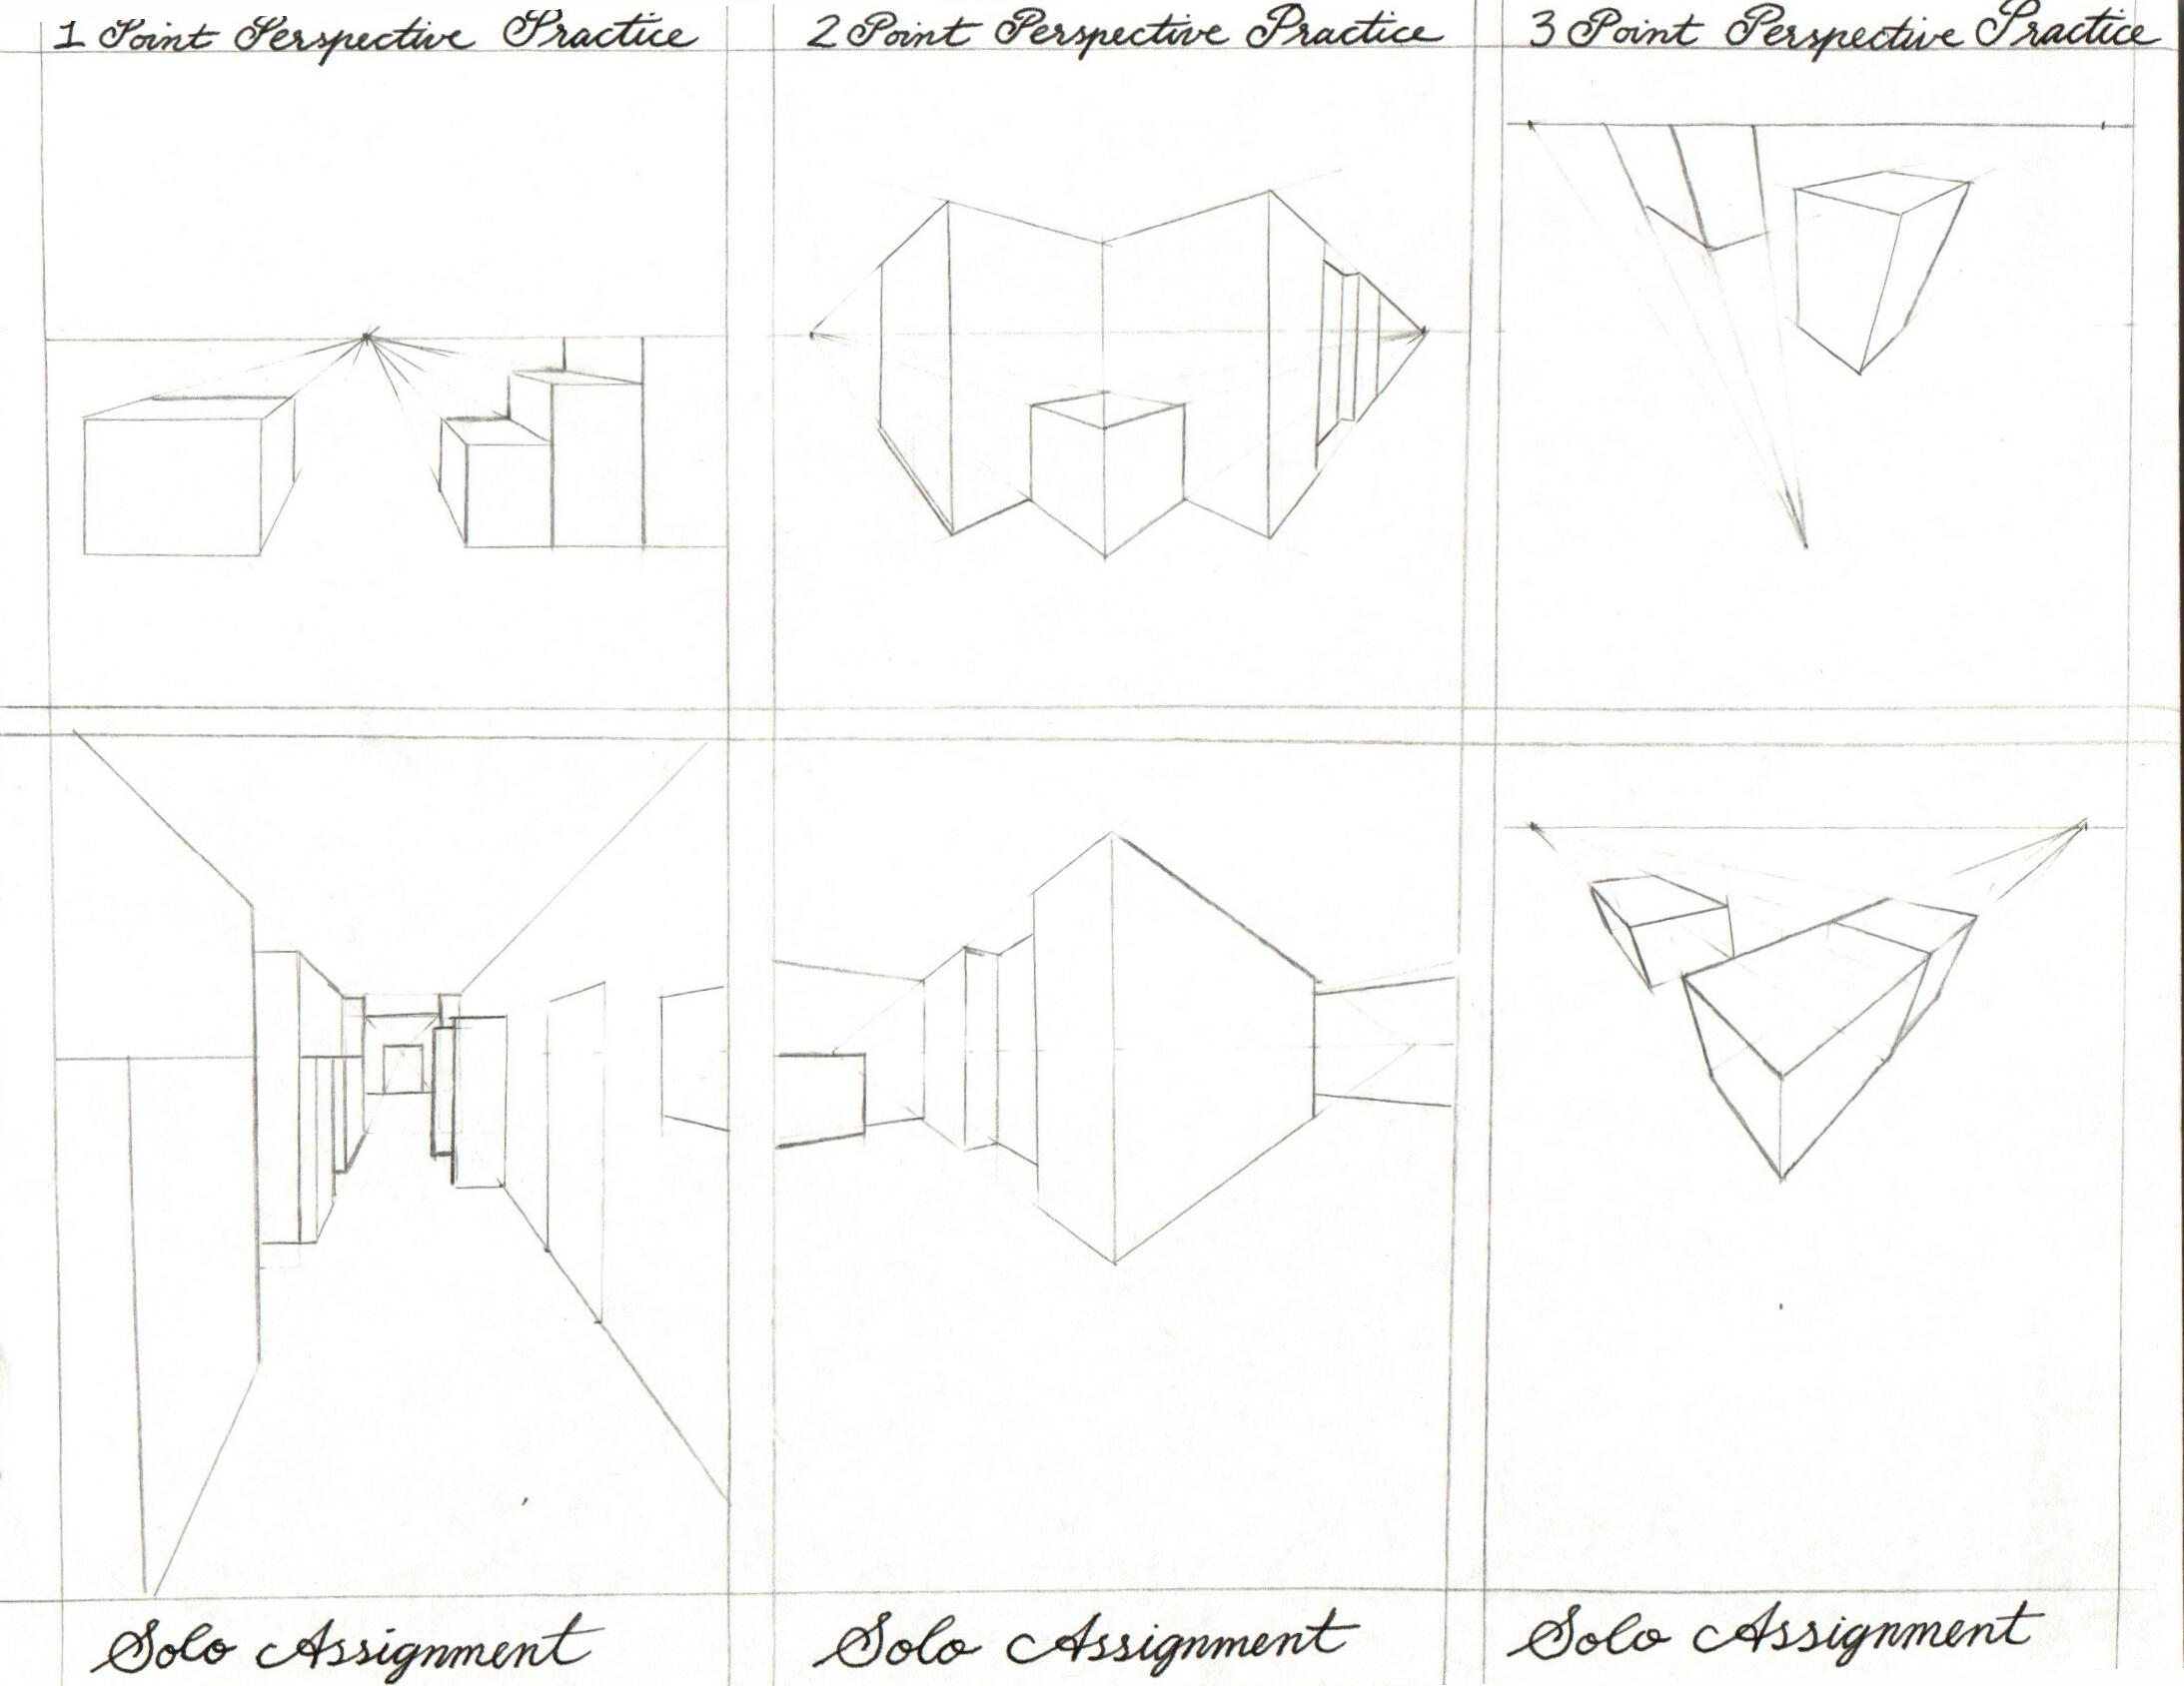 1 Point Perspective Practice
2 Point Perspective Practice
3 Point Perspective Practice
Solo Assignment
Solo Assignment
Solo Assignment